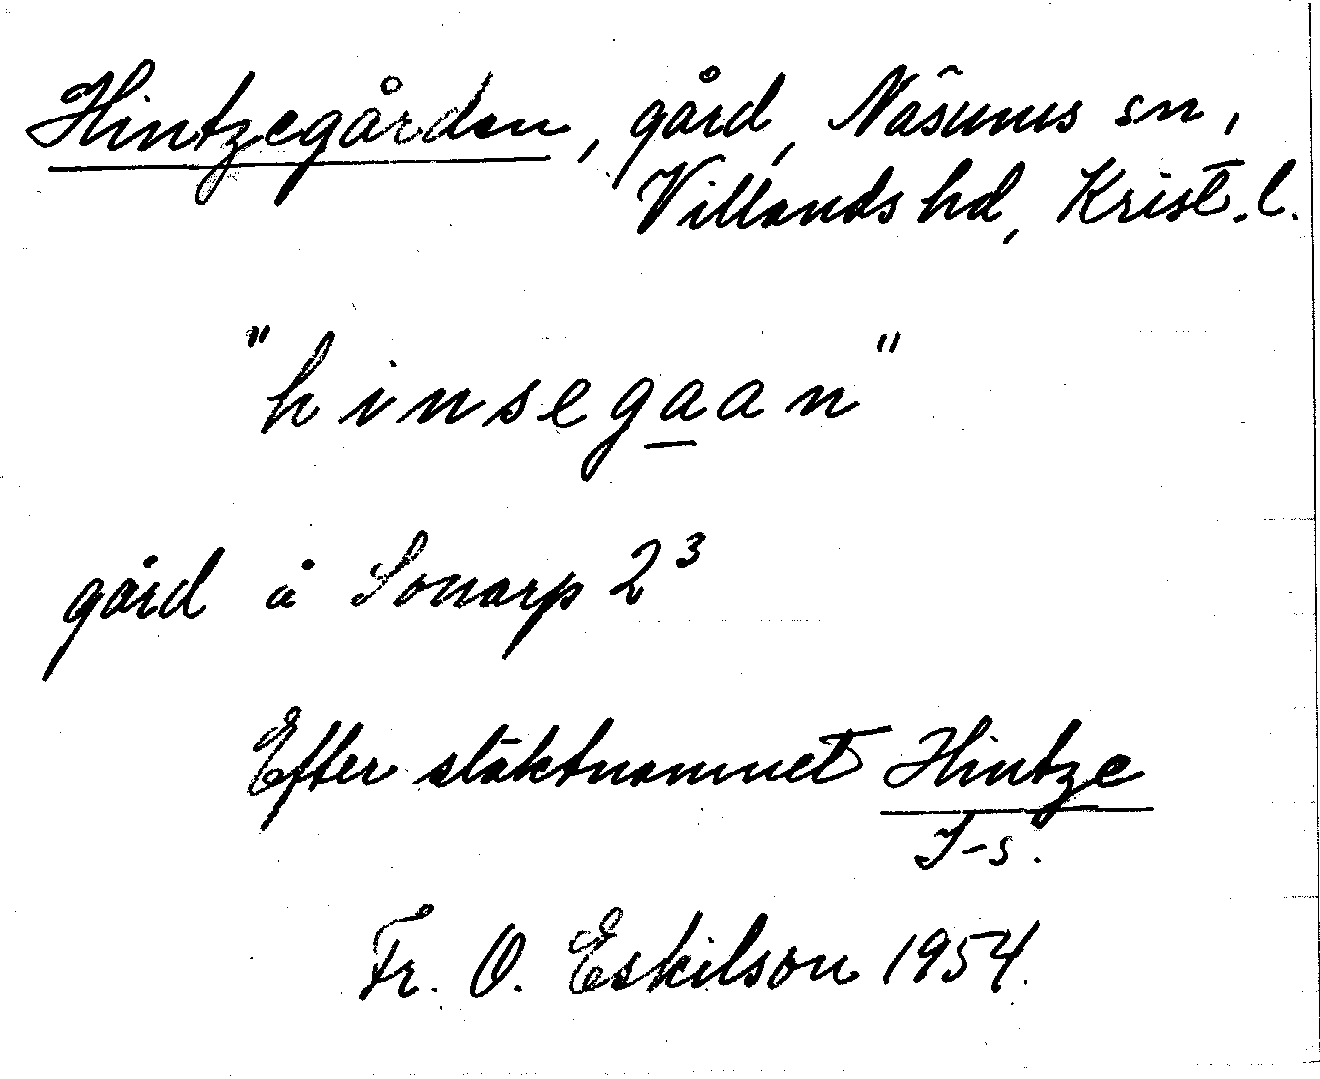 Hintzegården, gård, Näsums sn,
Villands hd, Krist. l.
"hinsegaan"
gård å Sonarp 2³
Efter släktnamnet Hintze
I-s.
Fr. O. Eskilson 1954.